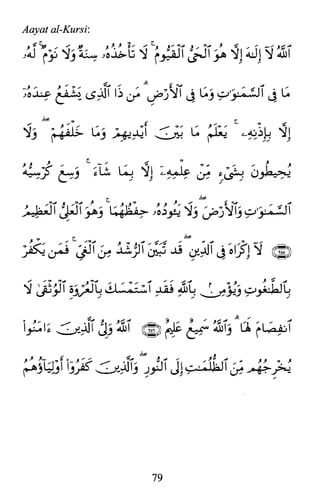 Aayat al-Kursi:
ٱللَّهُ لَآ إِلَـٰهَ إِلَّا هُوَ ٱلْحَىُّ ٱلْقَيُّومُ ۚ لَا تَأْخُذُهُۥ سِنَةٌ وَلَا نَوْمٌ ۚ لَّهُۥ
مَا فِى ٱلسَّمَـٰوَٰتِ وَمَا فِى ٱلْأَرْضِ ۗ مَن ذَا ٱلَّذِى يَشْفَعُ عِندَهُۥٓ
إِلَّا بِإِذْنِهِۦ ۚ يَعْلَمُ مَا بَيْنَ أَيْدِيهِمْ وَمَا خَلْفَهُمْ ۖ وَلَا
يُحِيطُونَ بِشَىْءٍ مِّنْ عِلْمِهِۦٓ إِلَّا بِمَا شَآءَ ۚ وَسِعَ كُرْسِيُّهُ
ٱلسَّمَـٰوَٰتِ وَٱلْأَرْضَ ۖ وَلَا يَـُٔودُهُۥ حِفْظُهُمَا ۚ وَهُوَ ٱلْعَلِىُّ ٱلْعَظِيمُ
﴿٢٥٥﴾ لَآ إِكْرَاهَ فِى ٱلدِّينِ ۖ قَد تَّبَيَّنَ ٱلرُّشْدُ مِنَ ٱلْغَىِّ ۚ فَمَن يَكْفُرْ
بِٱلطَّـٰغُوتِ وَيُؤْمِنۢ بِٱللَّهِ فَقَدِ ٱسْتَمْسَكَ بِٱلْعُرْوَةِ ٱلْوُثْقَىٰ لَا
ٱنفِصَامَ لَهَا ۗ وَٱللَّهُ سَمِيعٌ عَلِيمٌ ﴿٢٥٦﴾ ٱللَّهُ وَلِىُّ ٱلَّذِينَ ءَامَنُوا۟
يُخْرِجُهُم مِّنَ ٱلظُّلُمَـٰتِ إِلَى ٱلنُّورِ ۖ وَٱلَّذِينَ كَفَرُوٓا۟ أَوْلِيَآؤُهُمُ
79